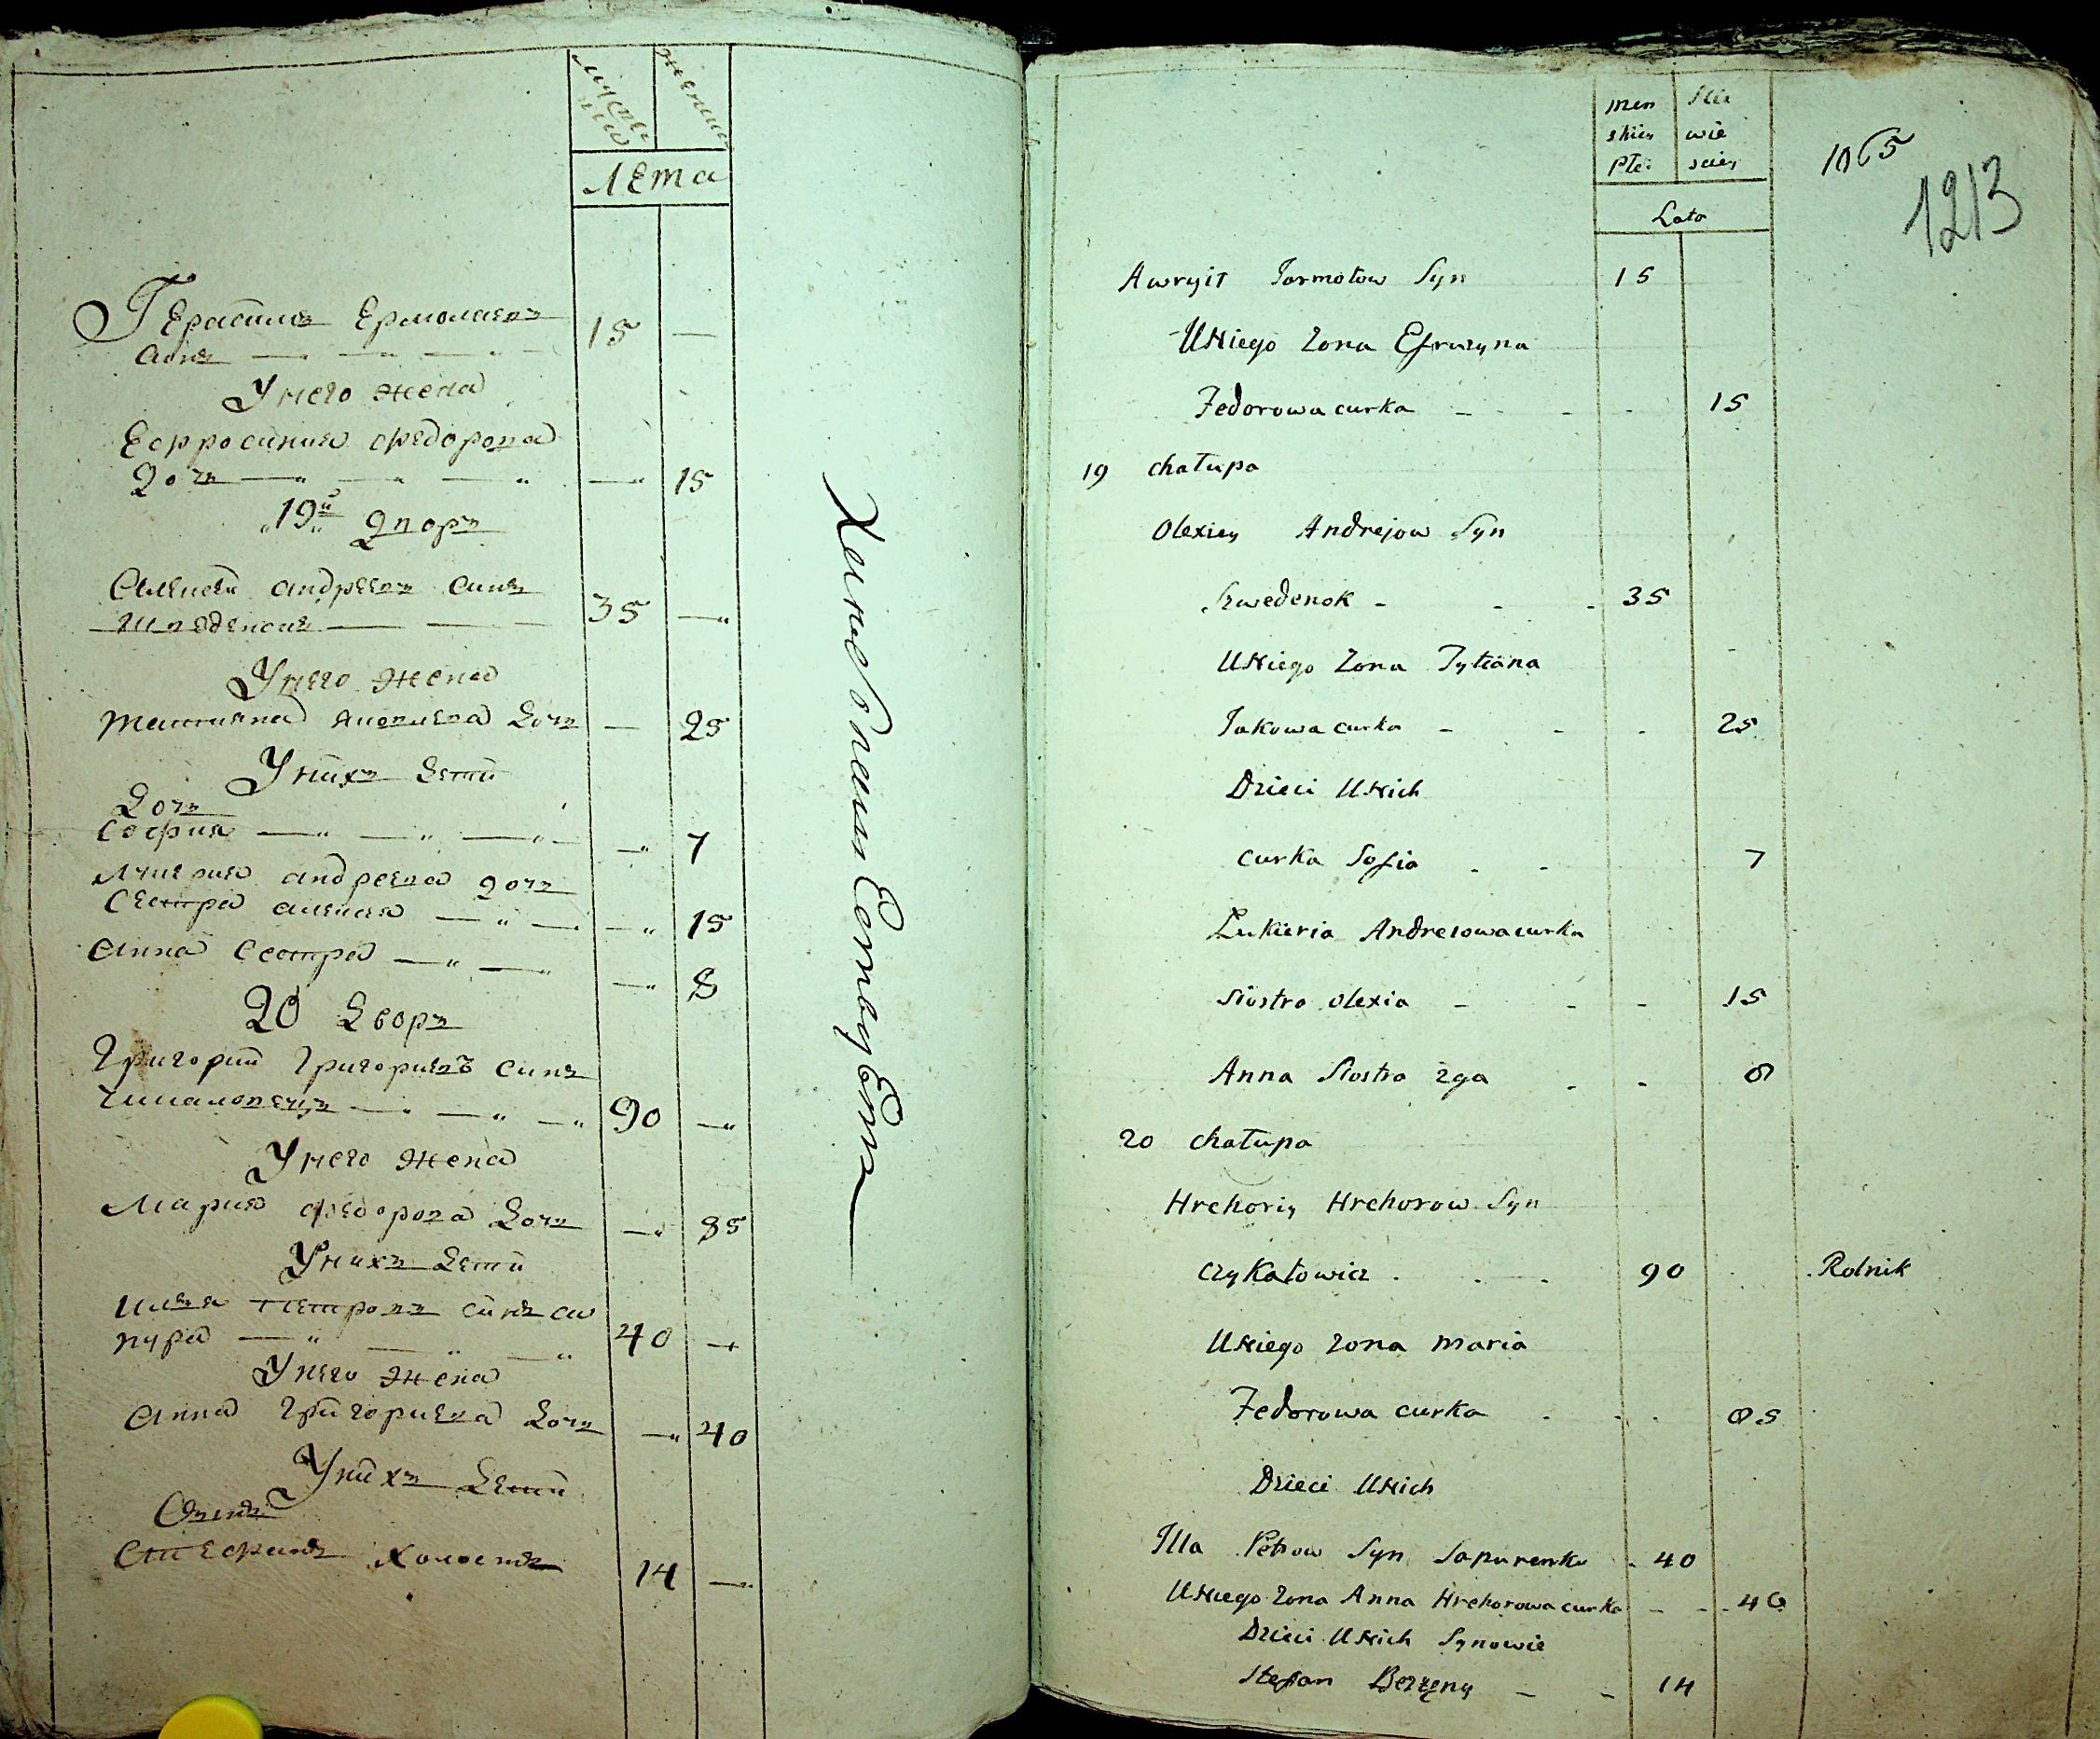 мужеска
женска
Лета
Герасимъ Ермолаевъ
синъ
15 —
У него жена
Ефросиния Федорова
дочъ — 15
19й дворъ
Алексей андреевъ синъ
Шведенокъ 35 —
У него жена
татияна яковлева дочъ — 25
У нихъ дети
дочъ
София — 7
лукерия андреева дочъ
Сестра алексея — 15
Анна Сестра — 8
20 дворъ
Григорий григориевъ синъ
90 —
У него жена
Мария федорова дочъ — 85
У нихъ дети
илья петровъ синъ са
пура 40 —
У него жена
Анна григориева дочъ — 40
У нихъ дети
Стефанъ холостъ 14 —
men skiey Płci
wie sciey
Lata
1065
1213
Jarmołow Syn 15
U Niego Zona Efruzyna
Fedorowa curka - - - 15
19 chałupa
Olexiey Andrejow Syn
Szwedenok - - - 35
U Niego Zona Tytiana
Jakowa curka - - - 25
Dzieci U Nich
curka Sofia - - 7
Łukieria Andreiowa curka
Siostra Olexia - - - 15
Anna Siostra 2ga - - 8
20 chałupa
Hrehoriy Hrehorow Syn
Czykałowicz - - - 90 Rolnik
U Niego Zona Maria
Fedorowa curka - - - 85
Dzieci U Nich
Illa Petrow Syn Sapurenko - 40
U Niego Zona Anna Hrehorowa curka - - - 40
Dzieci U Nich Synowie
Stefan Bezżęny - - 14